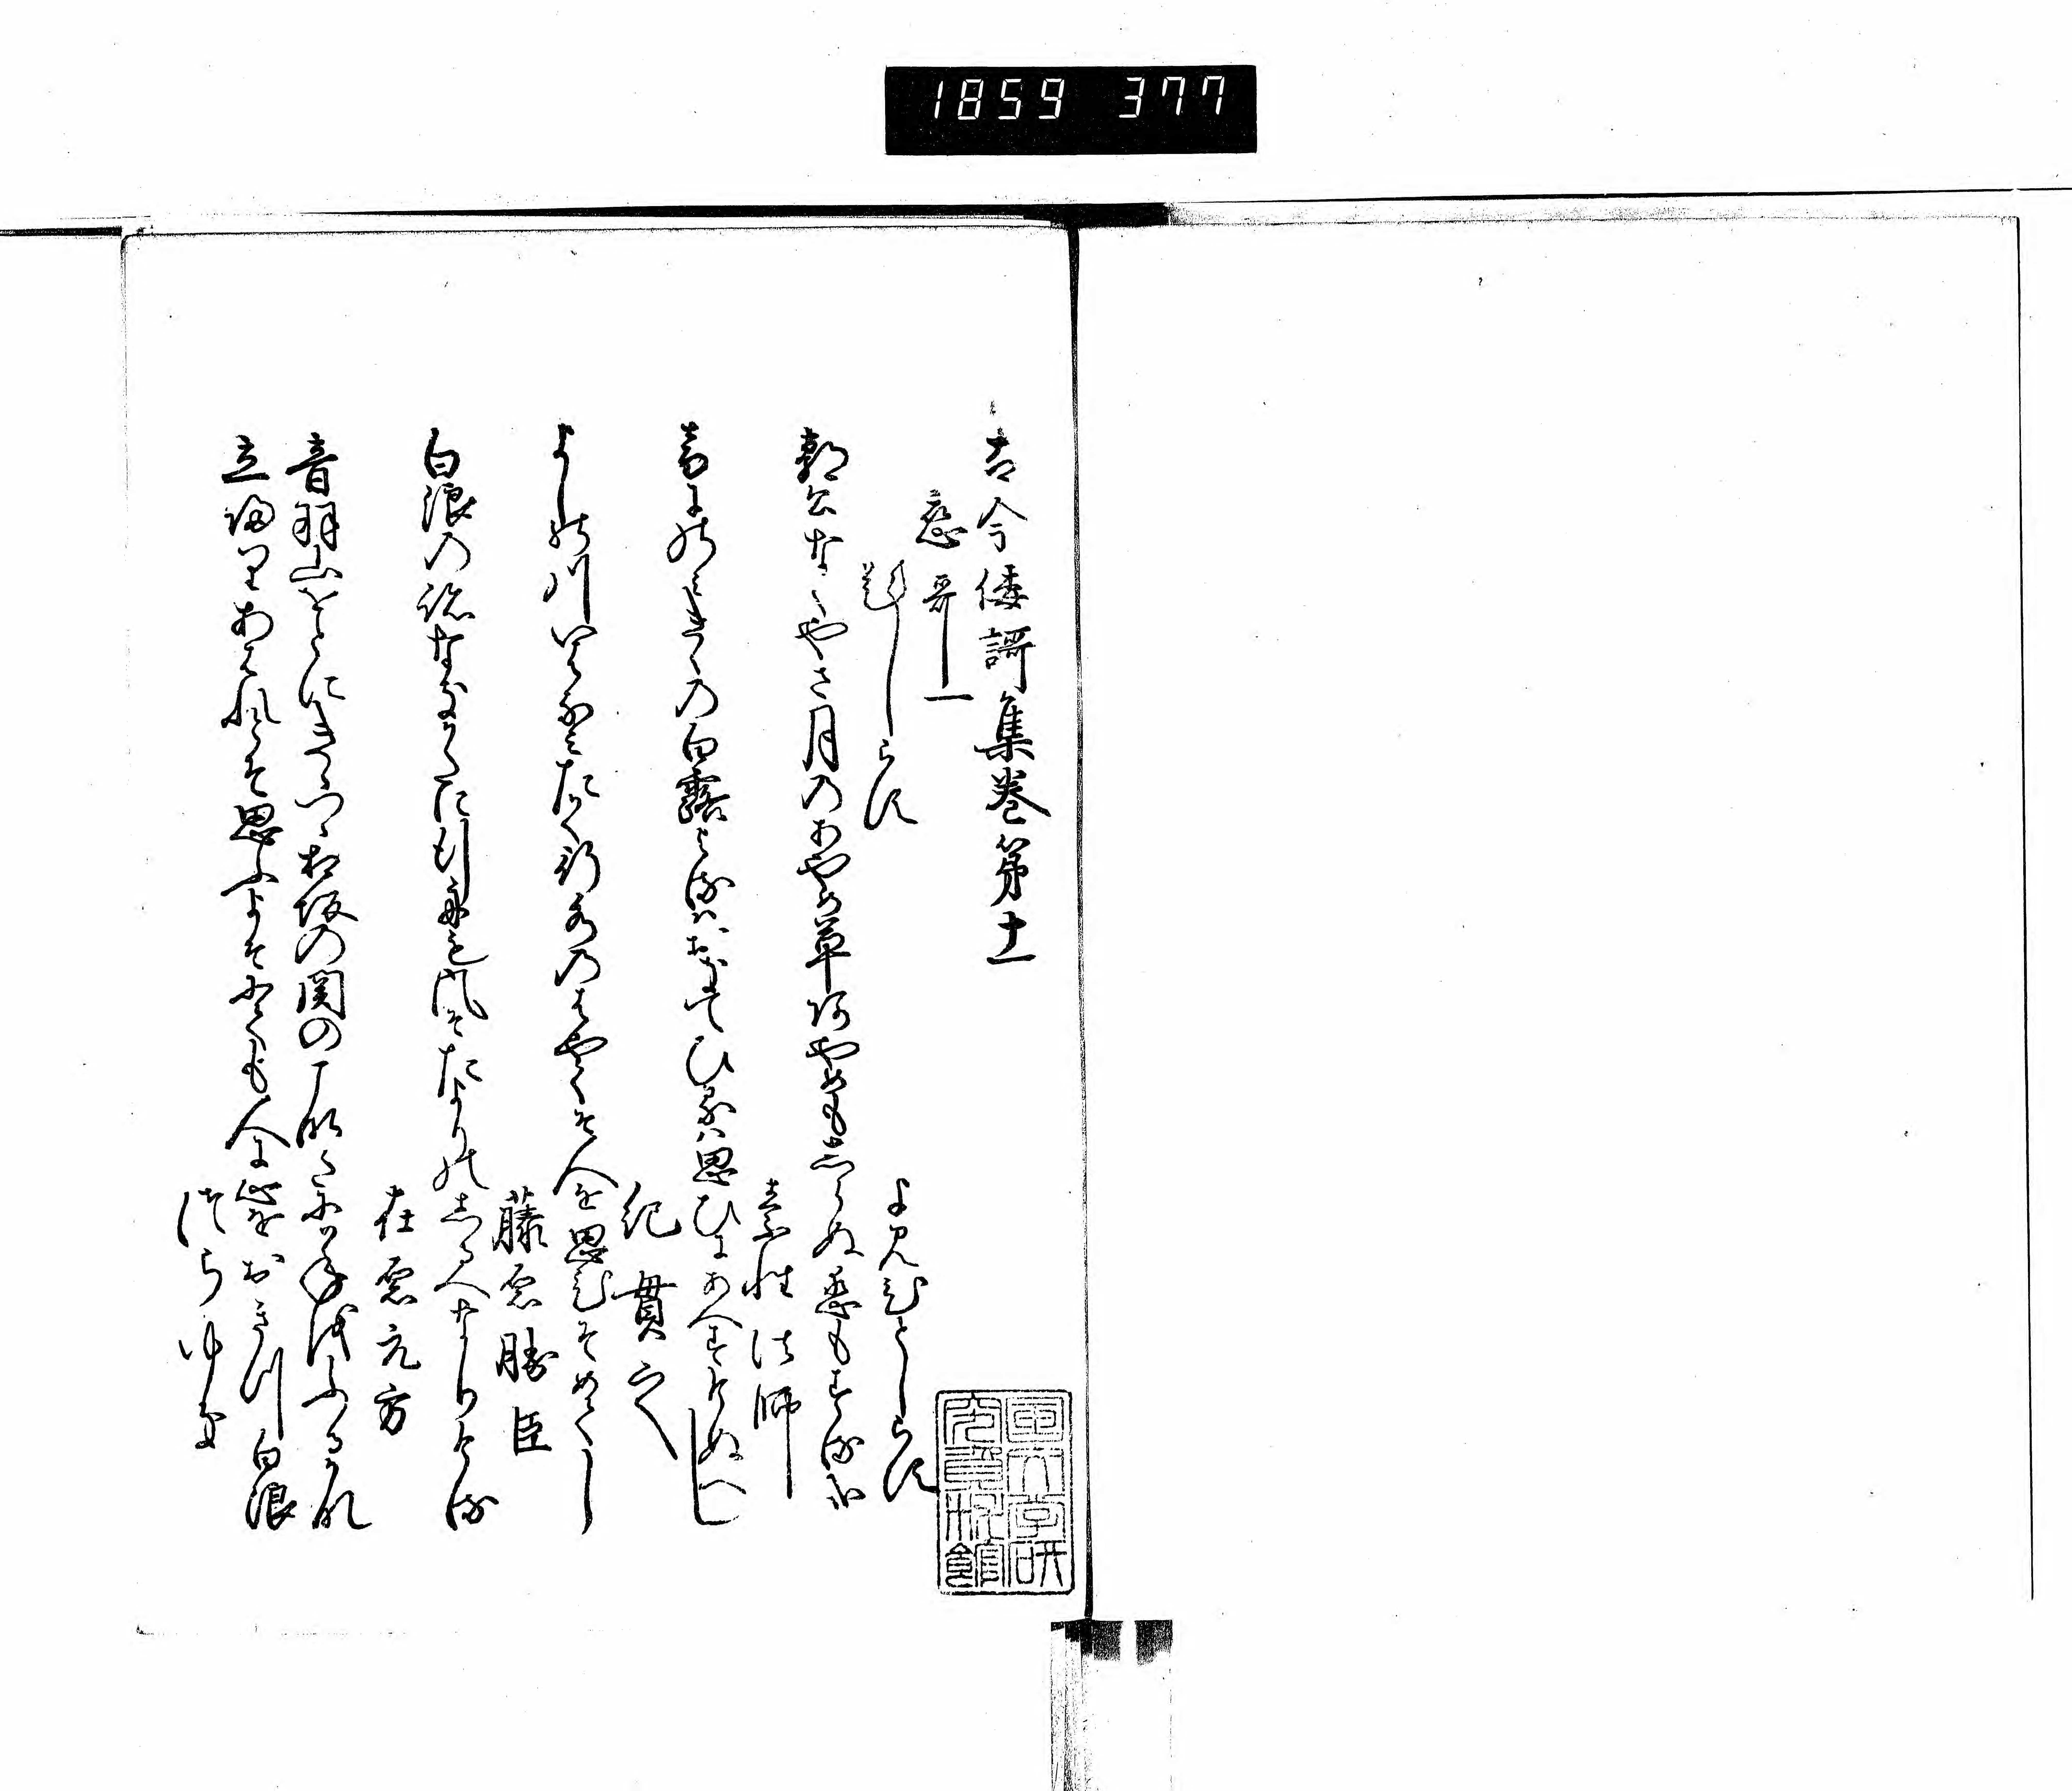 1859 377
古今倭謌集巻第十一
恋哥一
題しらす
よみ人しらす
郭公なくやさ月のあやめ草あやめもしらぬ恋もする哉
素性法師
音にのみきくの白露よるはおきてひるは思ひにあへすけぬへし
紀貫之
よしの川いはなみたかく行水のはやくそ人を思ひそめてし
藤原勝臣
白浪の跡なきかたに行舟も風そたよりのしるへなりける
在原元方
音羽山をとにきゝつゝ相坂の関のこなたに年をふるかな
立帰りあはれとそ思ふよそにても人に心をおきつ白浪
つらゆき
国文学研
究資料館